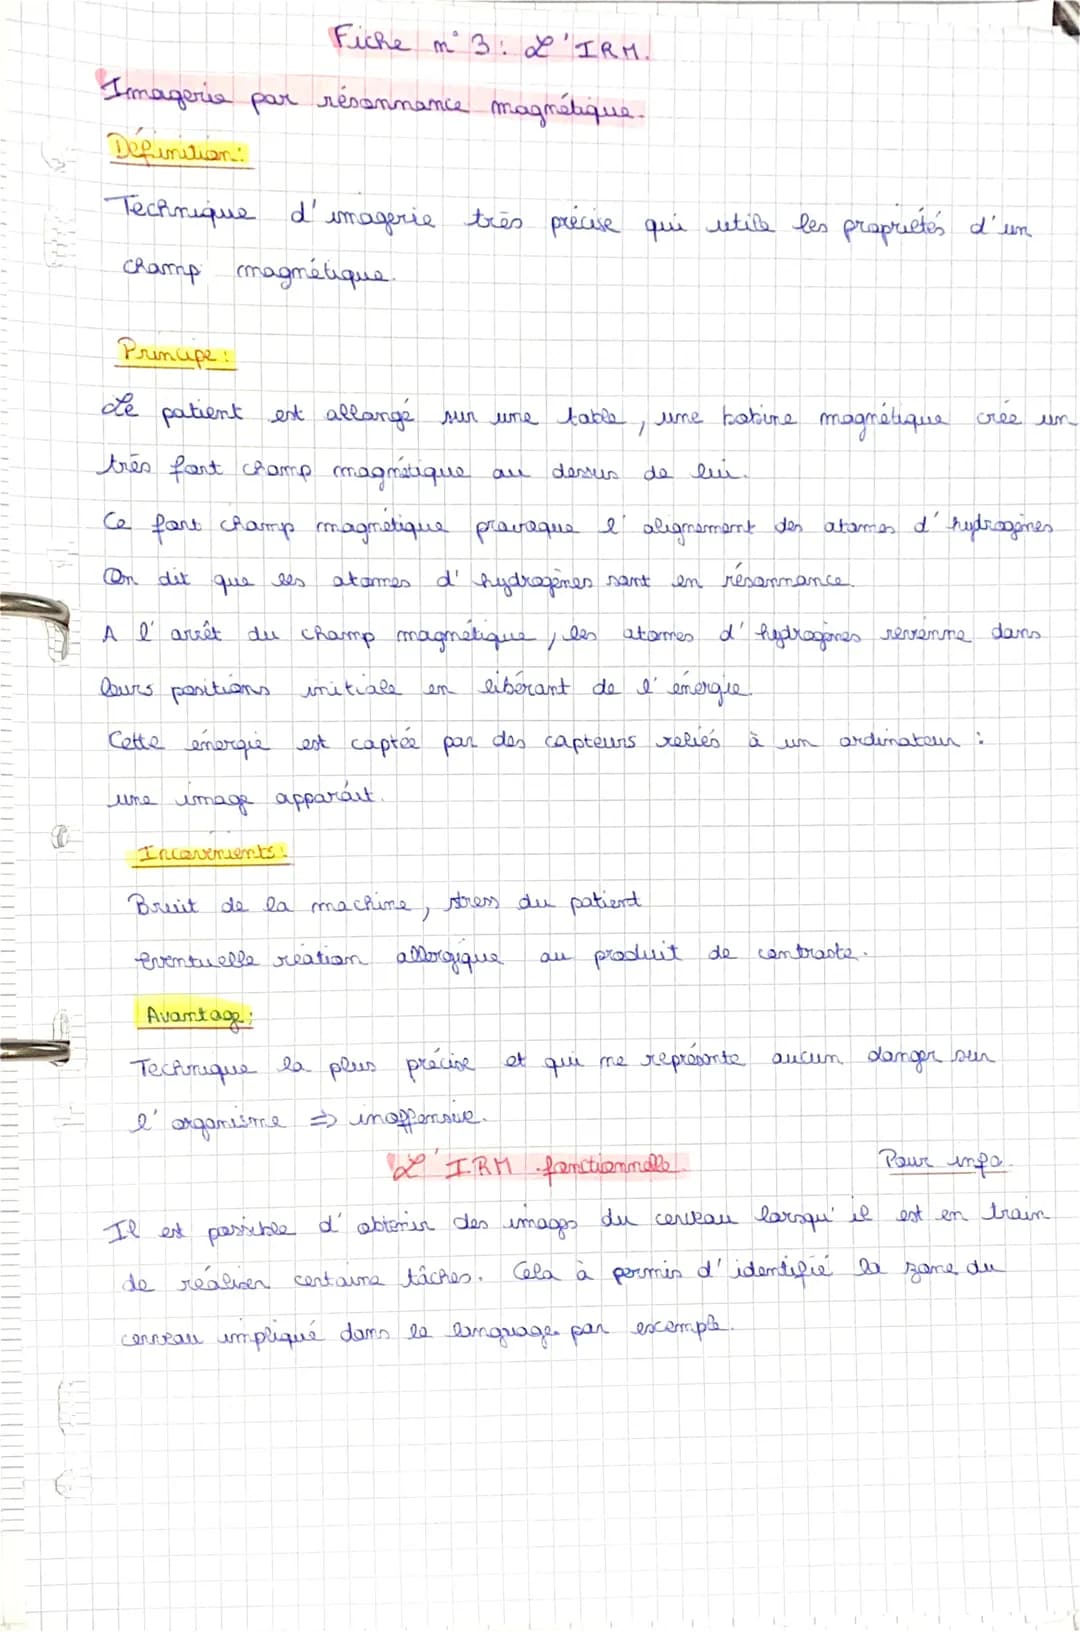 Fiche n° 3 : L'IRM.
Imagerie par résonnance magnétique.
Définition :
Technique d'imagerie très précise qui utile les propriétés d'un
champ magnétique.
Principe :
Le patient est allongé sur une table, une bobine magnétique crée un
très font champ magnétique au dessus de lui.
Ce font champ magnétique provoque l'alignement des atomes d'hydrogènes
On dit que les atomes d'hydrogènes sont en résonnance.
A l'arrêt du champ magnétique, les atomes d'hydrogènes revienne dans
leurs positions initiale en libérant de l'énergie.
Cette énergie est captée par des capteurs reliés à un ordinateur :
une image apparaît.
Inconvénients :
Bruit de la machine, stress du patient
Eventuelle réation allergique au produit de contraste.
Avantage :
Technique la plus précise et qui ne représente aucun danger sur
l'organisme => inoffensive.
L'I.RM fonctionnelle Pour info.
Il est possible d'obtenir des images du cerveau lorsqu'il est en train
de réaliser certaine tâches. Cela à permis d'identifié la zone du
cerveau impliqué dans le language par exemple.